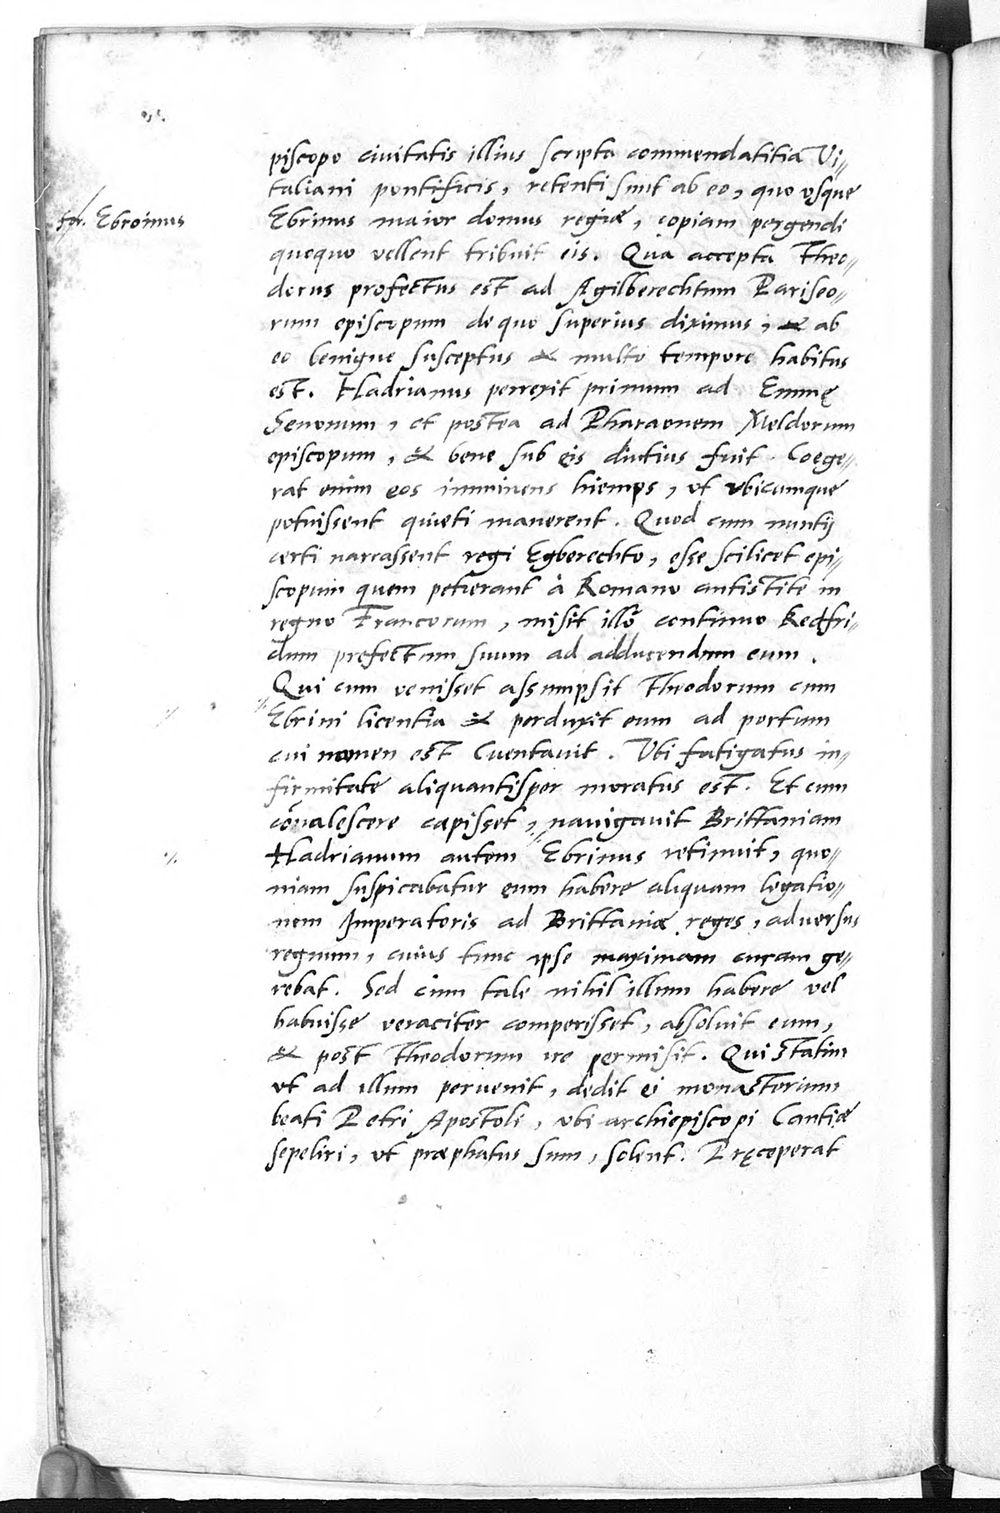 piscopo ciuitatis illius scripta commendatitia Vi-
taliani pontificis, retenti sunt ab eo, quo vsque
Ebroinus
Ebrinus maior domus regiæ, copiam pergendi
quoquo vellent tribuit eis. Qua accepta Theo-
dorus profectus est ad Agilberechtum Pariseo-
rum episcopum de quo superius diximus, & ab
eo benigne susceptus & multo tempore habitus
est. Hadrianus perrexit primum ad Emmę
Senonum, et postea ad Pharaonem Meldorum
episcopum, & bene sub eis diutius fuit. Coege-
rat enim eos imminens hiemps, vt vbicumque
potuissent quieti manerent. Quod cum nuntij
certi narrassent regi Egberechto, esse scilicet epi-
scopum quem petierant à Romano antistite in
regno Francorum, misit illō continuo Redfri-
dum prefectum suum ad adducendum eum.
Qui cum venisset assumpsit Theodorum cum
Ebrini licentia & perduxit eum ad portum
cui nomen est Cuentauit. Vbi fatigatus in-
firmitate aliquantisper moratus est. Et cum
cōualescere cœpisset, nauigauit Brittaniam
Hadrianum autem Ebrinus retinuit, quo-
niam suspicabatur eum habere aliquam legatio-
nem Imperatoris ad Brittaniæ reges, aduersus
regnum, cuius tunc ipse maximam curam ge-
rebat. Sed cum tale nihil illum habere vel
habuisse veraciter comperisset, absoluit eum,
& post Theodorum ire permisit. Qui statim
vt ad illum peruenit, dedit ei monasterium
beati Petri Apostoli, vbi archiepiscopi Cantiæ
sepeliri, vt præphatus sum, solent. Pręceperat